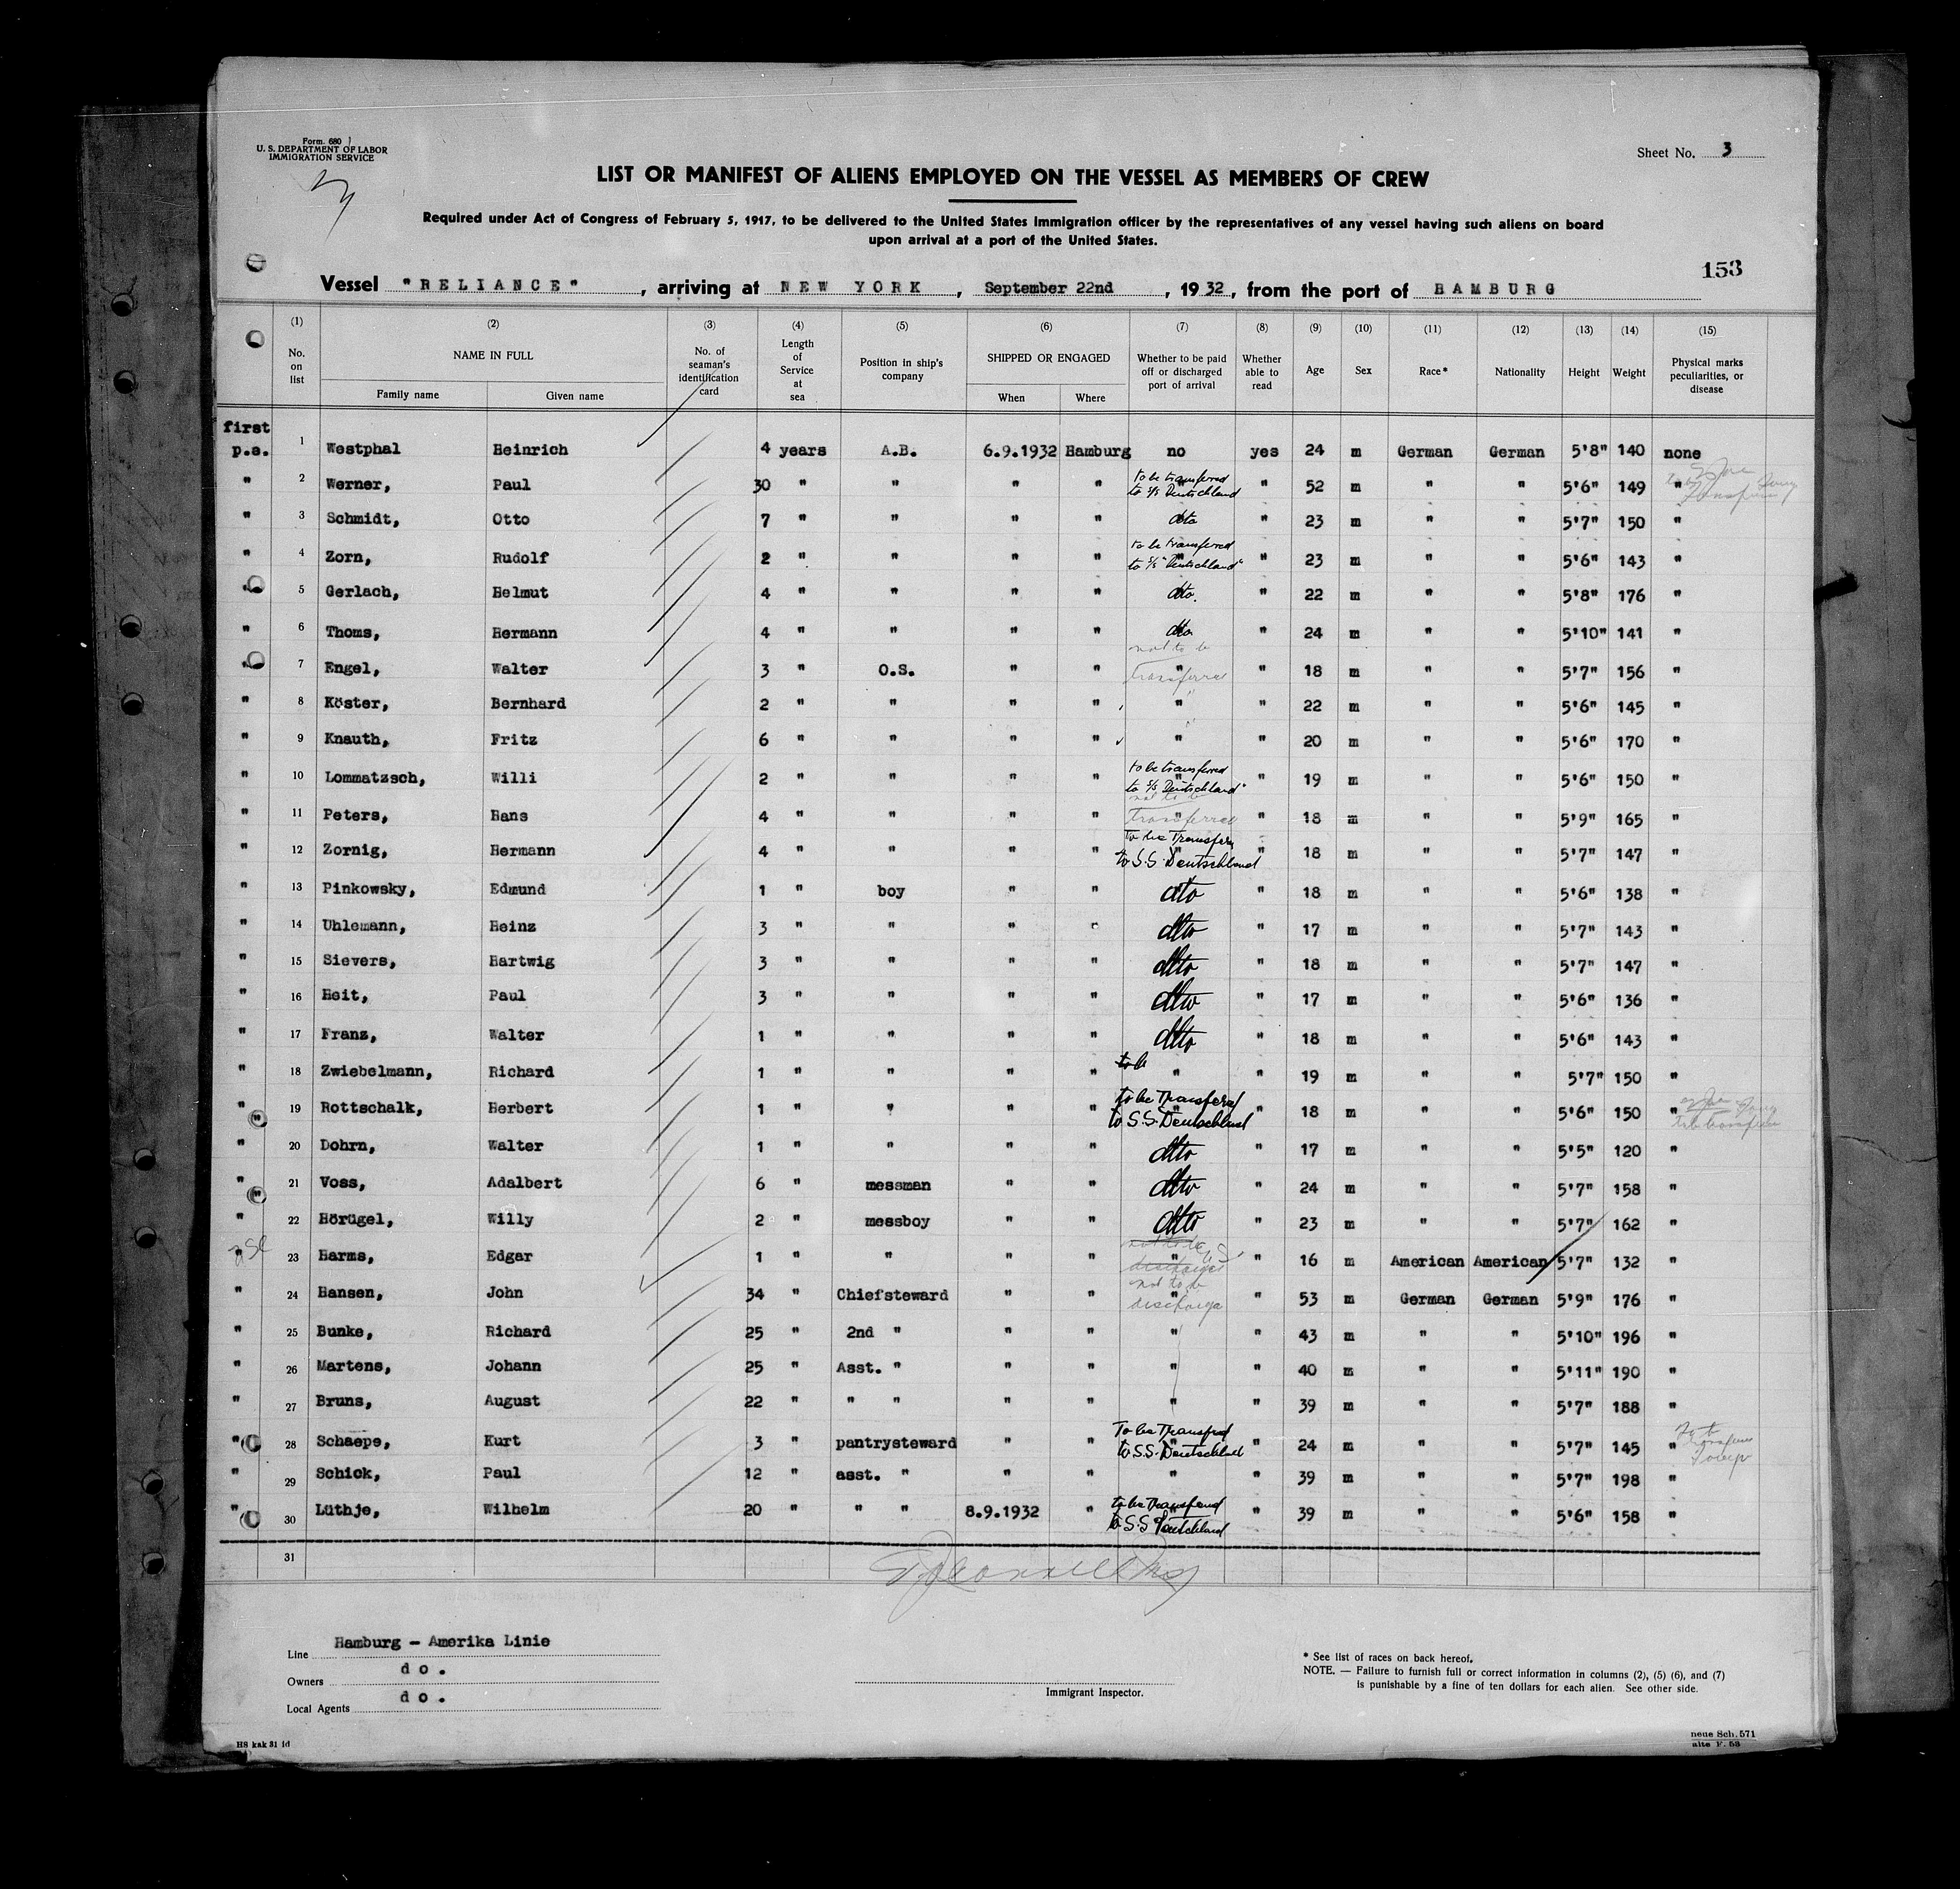 Form. 680
U. S. DEPARTMENT OF LABOR
IMMIGRATION SERVICE
Sheet No. 3
LIST OR MANIFEST OF ALIENS EMPLOYED ON THE VESSEL AS MEMBERS OF CREW
Required under Act of Congress of February 5, 1917, to be delivered to the United States Immigration officer by the representatives of any vessel having such aliens on board
upon arrival at a port of the United States.
153
Vessel "RELIANCE", arriving at NEW YORK, September 22nd, 1932, from the port of HAMBURG
(1) No. on list (2) NAME IN FULL Family name Given name (3) No. of seaman's identification card (4) Length of Service at sea (5) Position in ship's company (6) SHIPPED OR ENGAGED When Where (7) Whether to be paid off or discharged port of arrival (8) Whether able to read (9) Age (10) Sex (11) Race* (12) Nationality (13) Height (14) Weight (15) Physical marks peculiarities, or disease
first
p.s. 1 Westphal Heinrich 4 years A.B. 6.9.1932 Hamburg no yes 24 m German German 5'8" 140 none
" 2 Werner, Paul 30 " " " " to be transferred to S/S Deutschland " 52 m " " 5'6" 149 "
" 3 Schmidt, Otto 7 " " " " dto " 23 m " " 5'7" 150 "
" 4 Zorn, Rudolf 2 " " " " to be transferred to S/S "Deutschland" " 23 m " " 5'6" 143 "
" 5 Gerlach, Helmut 4 " " " " dto. " 22 m " " 5'8" 176 "
" 6 Thoms, Hermann 4 " " " " dto " 24 m " " 5'10" 141 "
" 7 Engel, Walter 3 " O.S. " " " not to be transferred " 18 m " " 5'7" 156 "
" 8 Köster, Bernhard 2 " " " " " " 22 m " " 5'6" 145 "
" 9 Knauth, Fritz 6 " " " " " " 20 m " " 5'6" 170 "
" 10 Lommatzsch, Willi 2 " " " " to be transferred to S/S Deutschland" " 19 m " " 5'6" 150 "
" 11 Peters, Hans 4 " " " " " not to be transferred " 18 m " " 5'9" 165 "
" 12 Zornig, Hermann 4 " " " " to be Transfer to S.S. Deutschland " 18 m " " 5'7" 147 "
" 13 Pinkowsky, Edmund 1 " boy " " dto " 18 m " " 5'6" 138 "
" 14 Uhlemann, Heinz 3 " " " " dtto " 17 m " " 5'7" 143 "
" 15 Sievers, Hartwig 3 " " " " dtto " 18 m " " 5'7" 147 "
" 16 Heit, Paul 3 " " " " dtto " 17 m " " 5'6" 136 "
" 17 Franz, Walter 1 " " " " dtto " 18 m " " 5'6" 143 "
" 18 Zwiebelmann, Richard 1 " " " " to be " " 19 m " " 5'7" 150 "
" 19 Rottschalk, Herbert 1 " " " " to be Transfered to S.S. Deutschland " 18 m " " 5'6" 150 "
" 20 Dohrn, Walter 1 " " " " dtto " 17 m " " 5'5" 120 "
" 21 Voss, Adalbert 6 " messman " " dtto " 24 m " " 5'7" 158 "
" 22 Hörügel, Willy 2 " messboy " " dtto " 23 m " " 5'7" 162 "
" 23 Harms, Edgar 1 " " " " " " 16 m American American 5'7" 132 "
" 24 Hansen, John 34 " Chiefsteward " " " not to be discharge " 53 m German German 5'9" 176 "
" 25 Bunke, Richard 25 " 2nd " " " " " 43 m " " 5'10" 196 "
" 26 Martens, Johann 25 " Asst. " " " " " 40 m " " 5'11" 190 "
" 27 Bruns, August 22 " " " " " " " 39 m " " 5'7" 188 "
" 28 Schaepe, Kurt 3 " pantrysteward " " To be Transfred to S.S. Deutschland " 24 m " " 5'7" 145 "
" 29 Schick, Paul 12 " asst. " " " " " 39 m " " 5'7" 198 "
" 30 Lüthje, Wilhelm 20 " " " 8.9.1932 " to be Transfered to S.S Deutschland " 39 m " " 5'6" 158 "
31
Line Hamburg - Amerika Linie
Owners do.
Local Agents do.
Immigrant Inspector.
* See list of races on back hereof.
NOTE. — Failure to furnish full or correct information in columns (2), (5) (6), and (7)
is punishable by a fine of ten dollars for each alien. See other side.
HS kak 31 1d
neue Sch. 571
alte F. 53